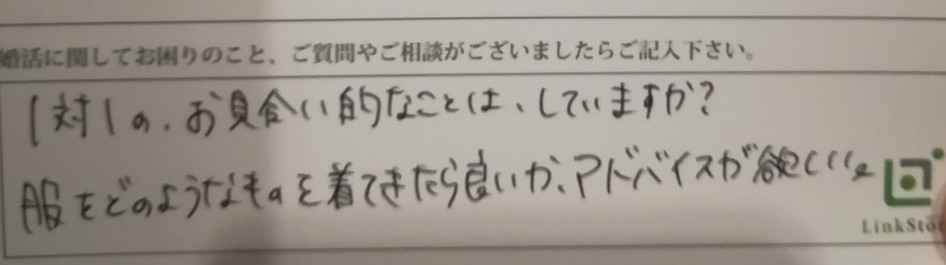 婚活に関してお困りのこと、ご質問やご相談がございましたらご記入下さい。
1対1の、お見合い的なことは、していますか?
服をどのようなものを着てきたら良いか、アドバイスが欲しい。
LinkSto